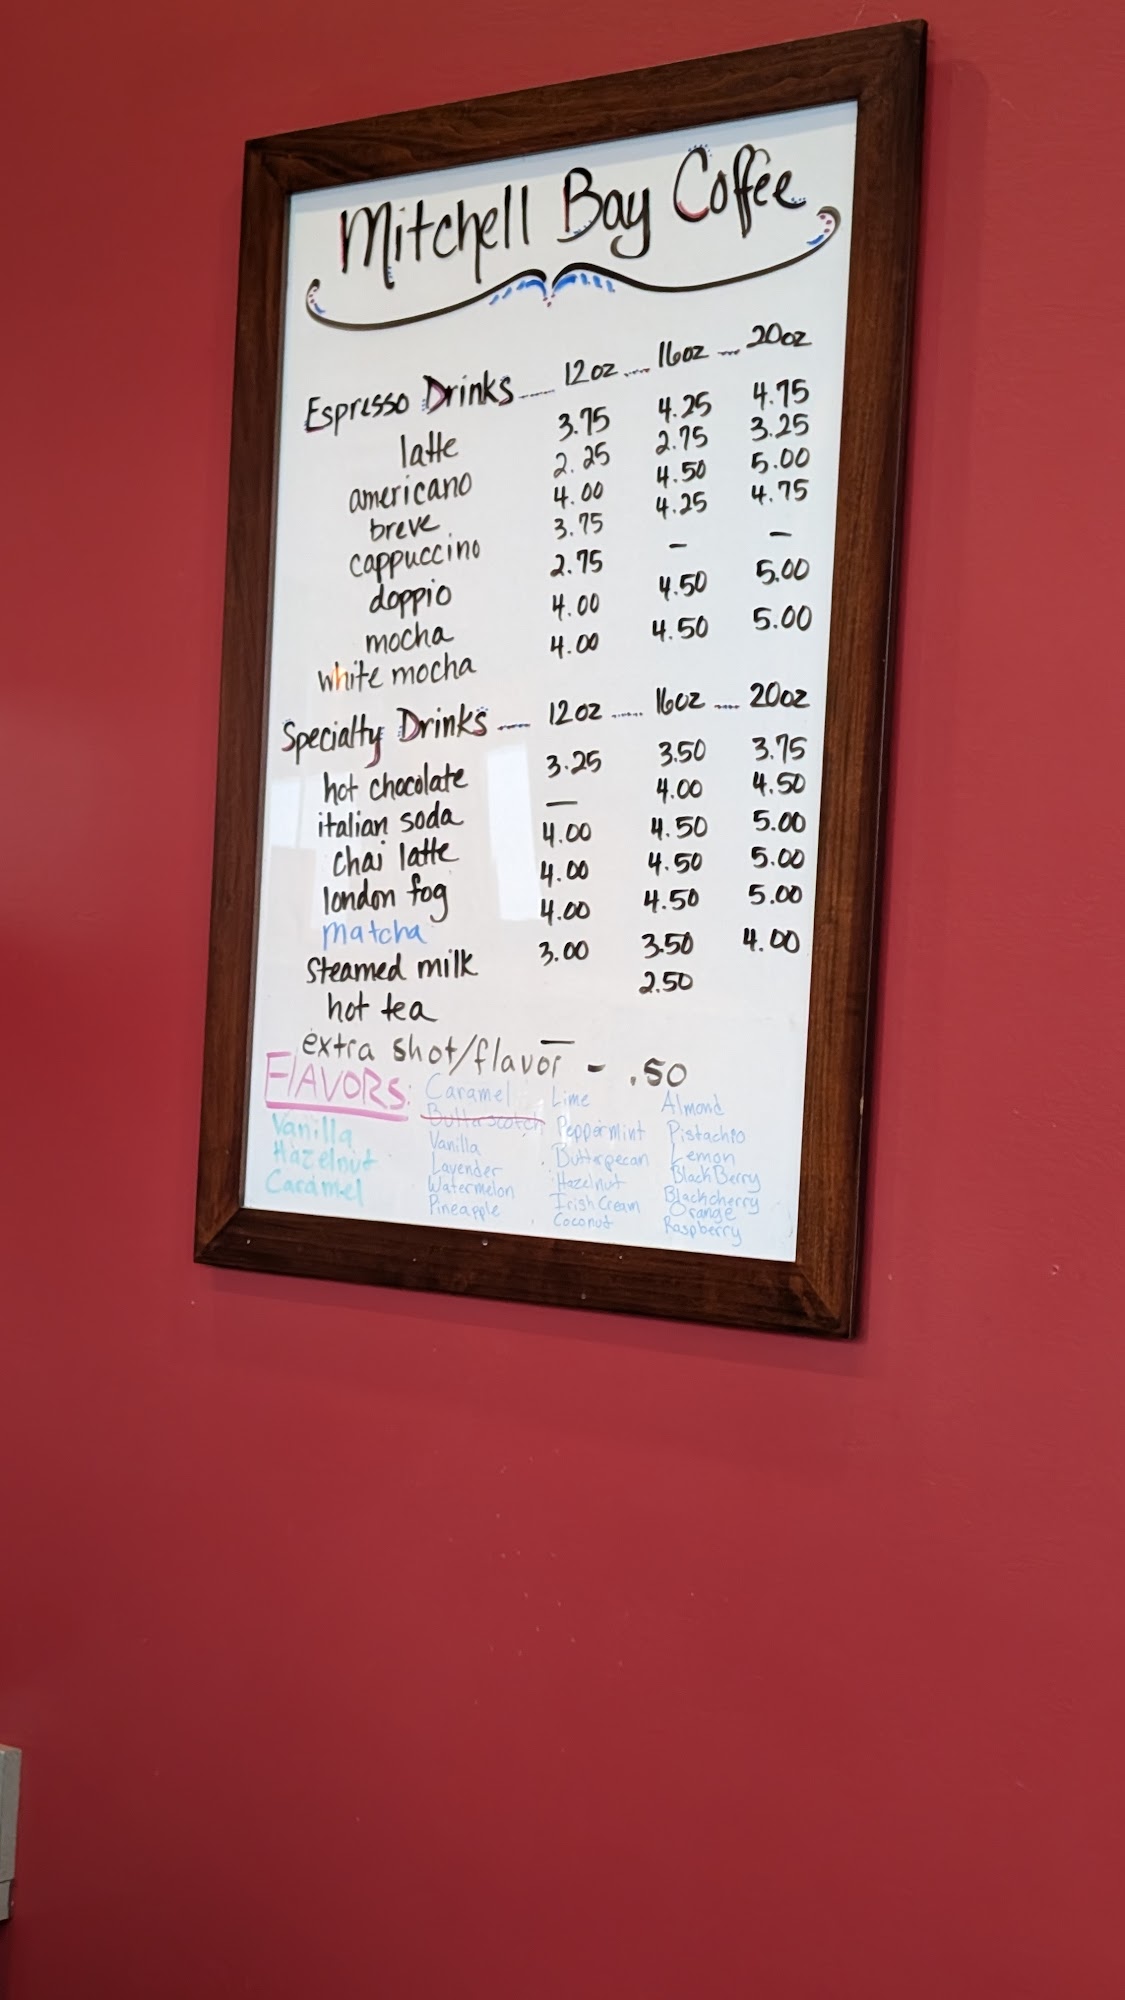 Mitchell Bay Coffee
Espresso Drinks 12oz 16oz 20oz
latte 3.75 4.25 4.75
americano 2.25 2.75 3.25
breve 4.00 4.50 5.00
cappuccino 3.75 4.25 4.75
doppio 2.75 - -
mocha 4.00 4.50 5.00
white mocha 4.00 4.50 5.00
Specialty Drinks 12oz 16oz 20oz
hot chocolate 3.25 3.50 3.75
italian soda — 4.00 4.50
chai latte 4.00 4.50 5.00
london fog 4.00 4.50 5.00
matcha 4.00 4.50 5.00
steamed milk 3.00 3.50 4.00
hot tea — 2.50
extra shot/flavor - .50
FlAVORS:
Vanilla
Hazelnut
Caramel
Caramel
Butterscotch
Vanilla
Lavender
Watermelon
Pineapple
Lime
Peppermint
Butterpecan
Hazelnut
Irish Cream
Coconut
Almond
Pistachio
Lemon
BlackBerry
Blackcherry
Orange
Raspberry